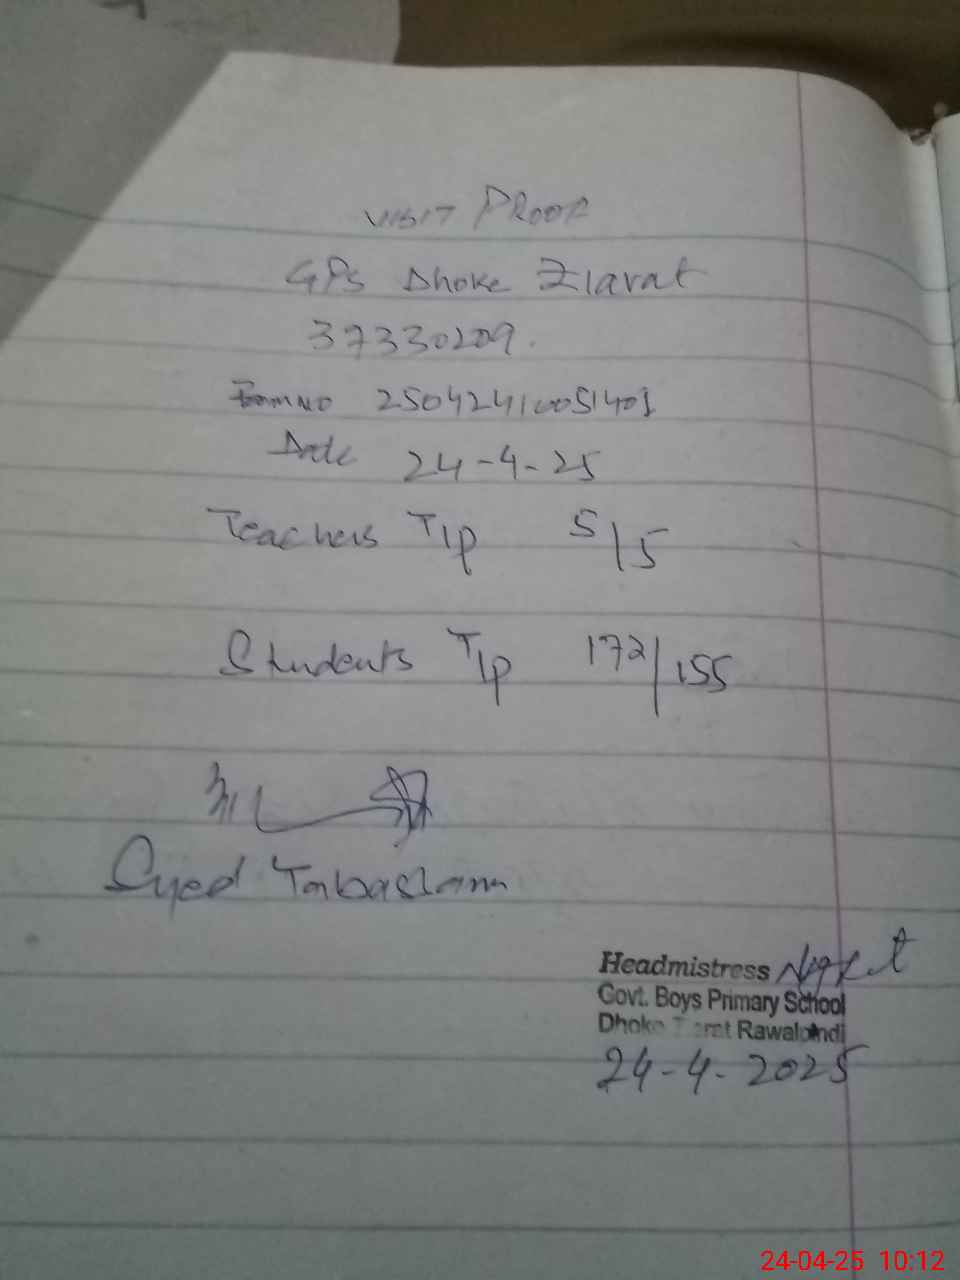 VISIT PROOF
GPS Dhoke Ziarat
37330209.
25042410051401
Date 24-4-25
Teachers T/P 5/5
Students T/P 172/155
Syed
Headmistress
Govt. Boys Primary School
Dhoke Rawalpindi
24-4-2025
24-04-25 10:12